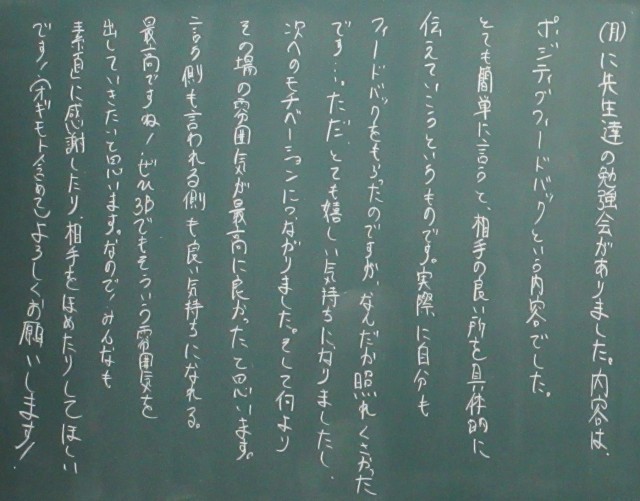 (月)に先生達の勉強会がありました。内容は、
ポジティブフィードバックという内容でした。
とても簡単に言うと、相手の良い所を具体的に
伝えていこうというものです。実際に自分も
フィードバックをもらったのですが、なんだか照れくさかった
です…。ただ、とても嬉しい気持ちになりましたし、
次へのモチベーションにつながりました。そして何より
その場の雰囲気が最高に良かったと思います。
言う側も言われる側も良い気持ちになれる。
最高ですね!ぜひ3Bでもそういう雰囲気を
出していきたいと思います。なので、みんなも
素直に感謝したり、相手をほめたりしてほしい
です!(オギモト含めて)よろしくお願いします!!